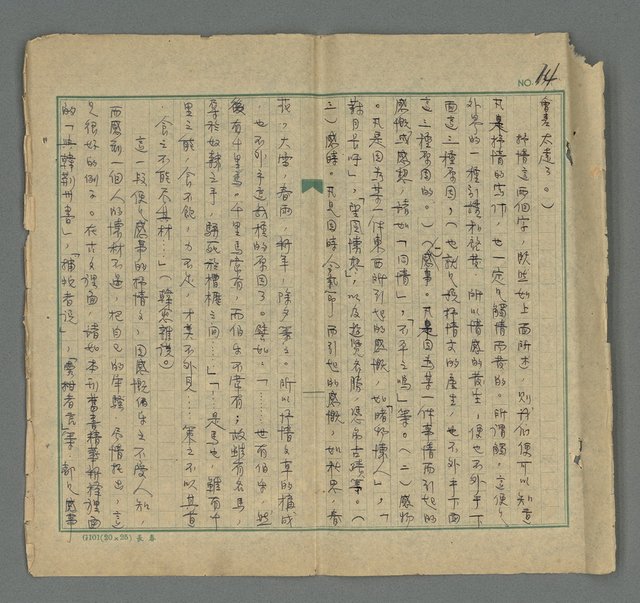 NO. 14
太遠了。)
抒情這兩個字,既然如上面所述,則我們便可以知道
凡是抒情的寫作,也一定是觸情而發的。所謂觸,這便是
外界的一種引誘和啟發。所以情感的發生,便也不外乎下
面這三種原因,(也就是說抒情文的產生,也不外乎下面
這三種原因的。)(一)感事。凡是因為某一件事情而引起的
感慨或感想,諸如「同情」,「不平之鳴」等。(二)感物
。凡是因為某一件東西所引起的感慨,如睹物懷人」,「
目長呼」,「望國懷」,以及遊覽名勝,憑弔古蹟等。(
三)感時。凡是因時令氣節而引起的感慨,如秋思,春
花,大雪,春雨,新年,除夕等之。所以抒情文章的構成
,也不外乎這幾種的原因了。譬如:「……世有伯樂,然
後有千里馬。千里馬常有,而伯樂不常有;故雖有名馬,
辱於奴隸之手,駢死於槽櫪之間…」「…是馬也,雖有千
里之能,食不飽,力不足,才美不外見……策之不以其道
,食之不能盡其材…」(韓愈雜說。)
這一段便是感事的抒情文,因感慨伯樂之不受人知,
而感到一個人的懷材不遇,把自己的牢騷,盡情托出,這
是很好的例子。在古文裡面,諸如本刊舊書精華新釋裡面
的「與韓荊州書」,「捕蛇者說」,「賣柑者言」等,都是感事
G101(20×25) 長春